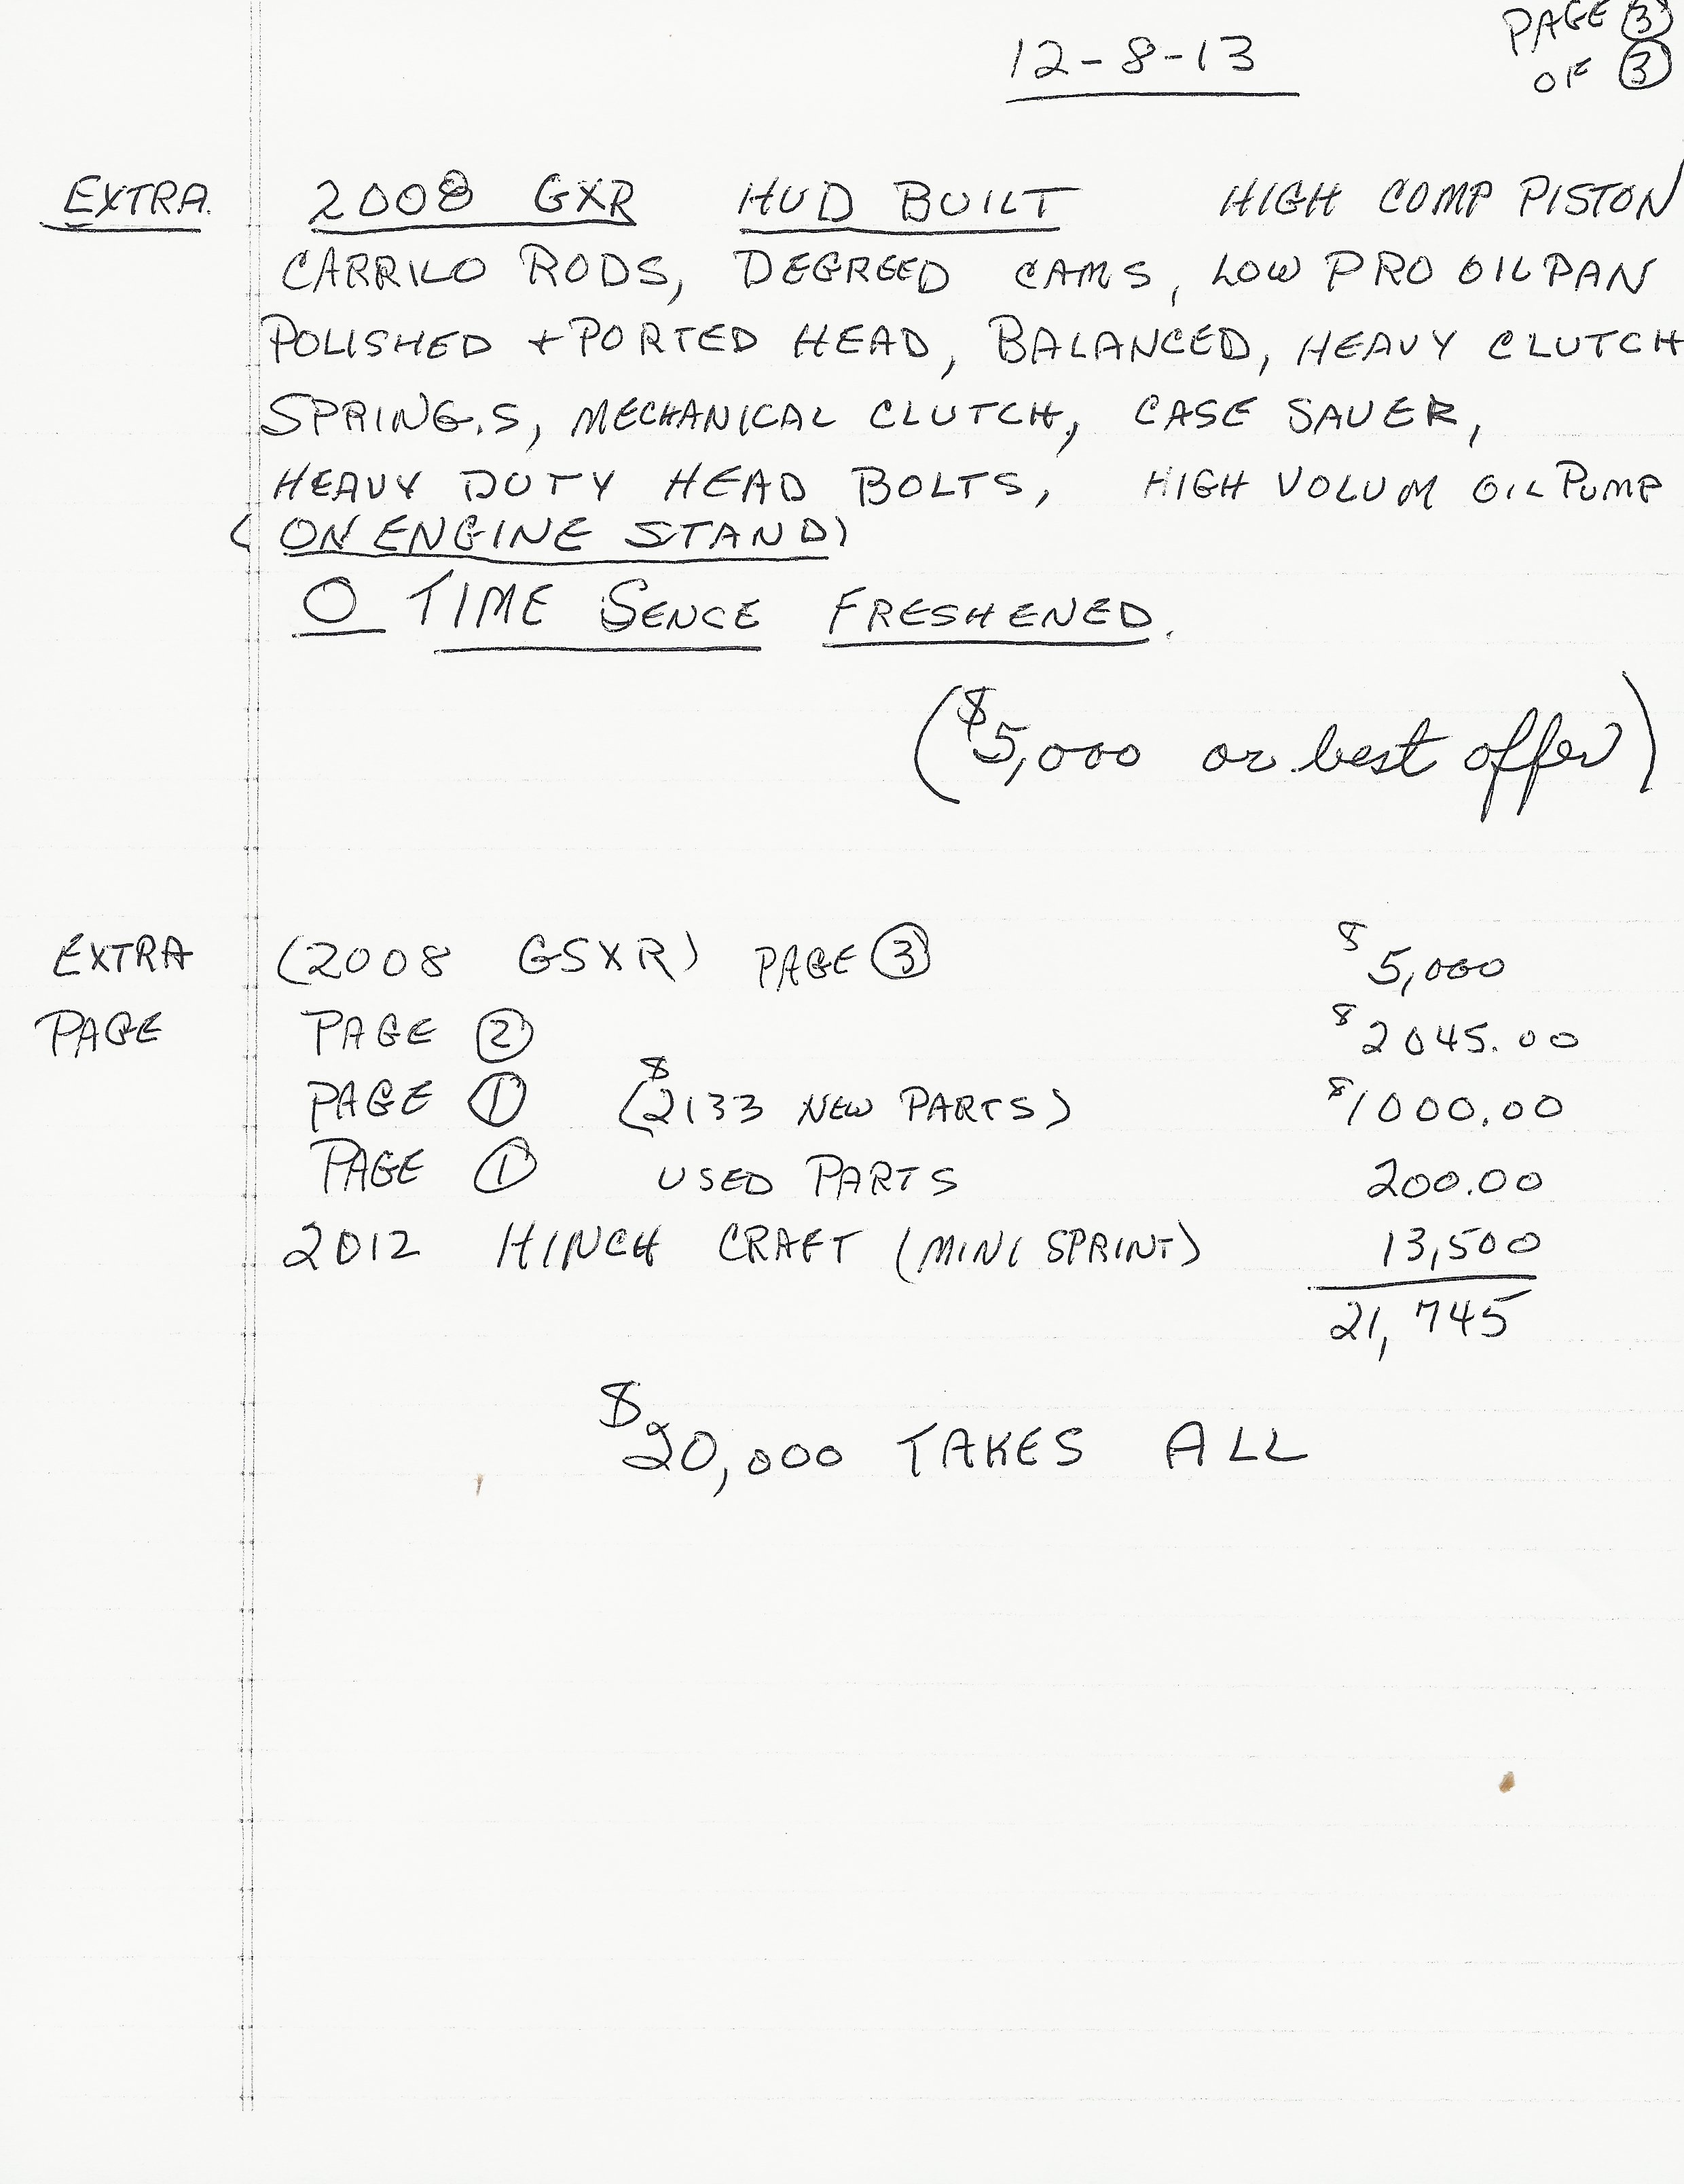 PAGE 3
12-8-13 OF 3
EXTRA. 2008 GXR HUD BUILT HIGH COMP PISTON
CARRILO RODS, DEGREED CAMS, LOW PRO OIL PAN
POLISHED + PORTED HEAD, BALANCED, HEAVY CLUTCH
SPRING.S, MECHANICAL CLUTCH, CASE SAVER,
HEAVY DUTY HEAD BOLTS, HIGH VOLUM OIL PUMP
(ON ENGINE STAND)
0 TIME SENCE FRESHENED.
($5,000 or best offer)
EXTRA (2008 GSXR) PAGE 3 $5,000
PAGE PAGE 2 $2045.00
PAGE 1 ($2133 NEW PARTS) $1000.00
PAGE 1 USED PARTS 200.00
2012 HINCH CRAFT (MINI SPRINT) 13,500
21,745
$20,000 TAKES ALL